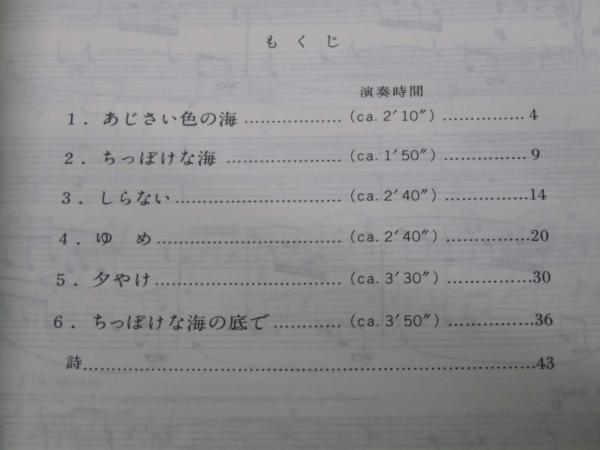 もくじ
演奏時間
1. あじさい色の海 .................. (ca. 2′10″) ............... 4
2. ちっぽけな海 .................. (ca. 1′50″) ............... 9
3. しらない .................. (ca. 2′40″) ............... 14
4. ゆ　め .................. (ca. 2′40″) ............... 20
5. 夕やけ .................. (ca. 3′30″) ............... 30
6. ちっぽけな海の底で ............ (ca. 3′50″) ............... 36
詩 .................. 43